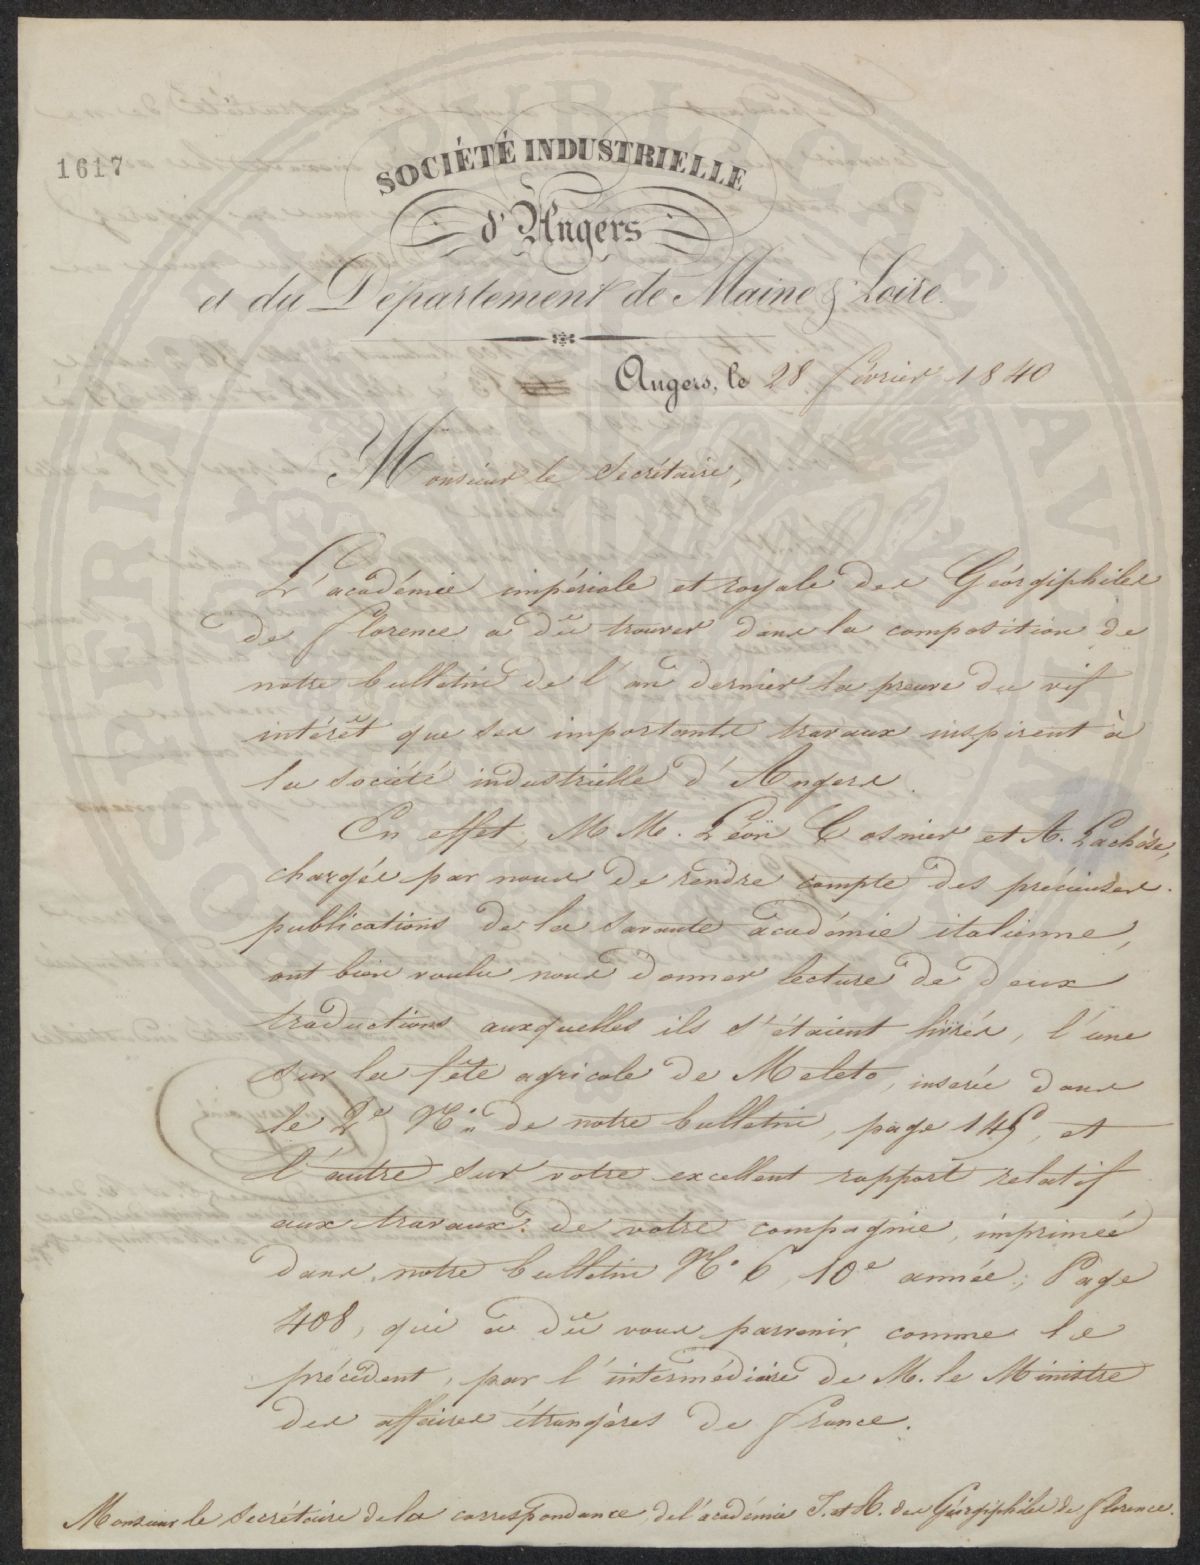 1617
SOCIÉTÉ INDUSTRIELLE
d'Angers
et du Département de Maine & Loire.
Angers, le 28 février 1840
Monsieur le Secrétaire,
L'académie impériale et royale des Géorgiphiles
de Florence a dû trouver dans la composition de
notre bulletin de l'an dernier la preuve du vif
intérêt que ses importants travaux inspirent à
la société industrielle d'Angers.
En effet, M M. Léon Cosnier et A. Lachèse,
chargés par nous de rendre compte des précieuses
publications de la savante académie italienne,
ont bien voulu nous donner lecture de deux
traductions auxquelles ils s'étaient livrés, l'une
sur la fête agricole de Meleto, insérée dans
le 2e No. de notre bulletin, page 145, et
l'autre sur votre excellent rapport relatif
aux travaux de votre compagnie, imprimée
dans notre bulletin No. 6, 10e année; Page
408, qui a dû vous parvenir comme le
précédent, par l'intermédiaire de M. le Ministre
des affaires étrangères de france.
Monsieur le Secrétaire de la correspondance, de l'académie I. et R. des Géorgiphiles de florence.
PROSPERITATI PUBLICAE AUGENDAE